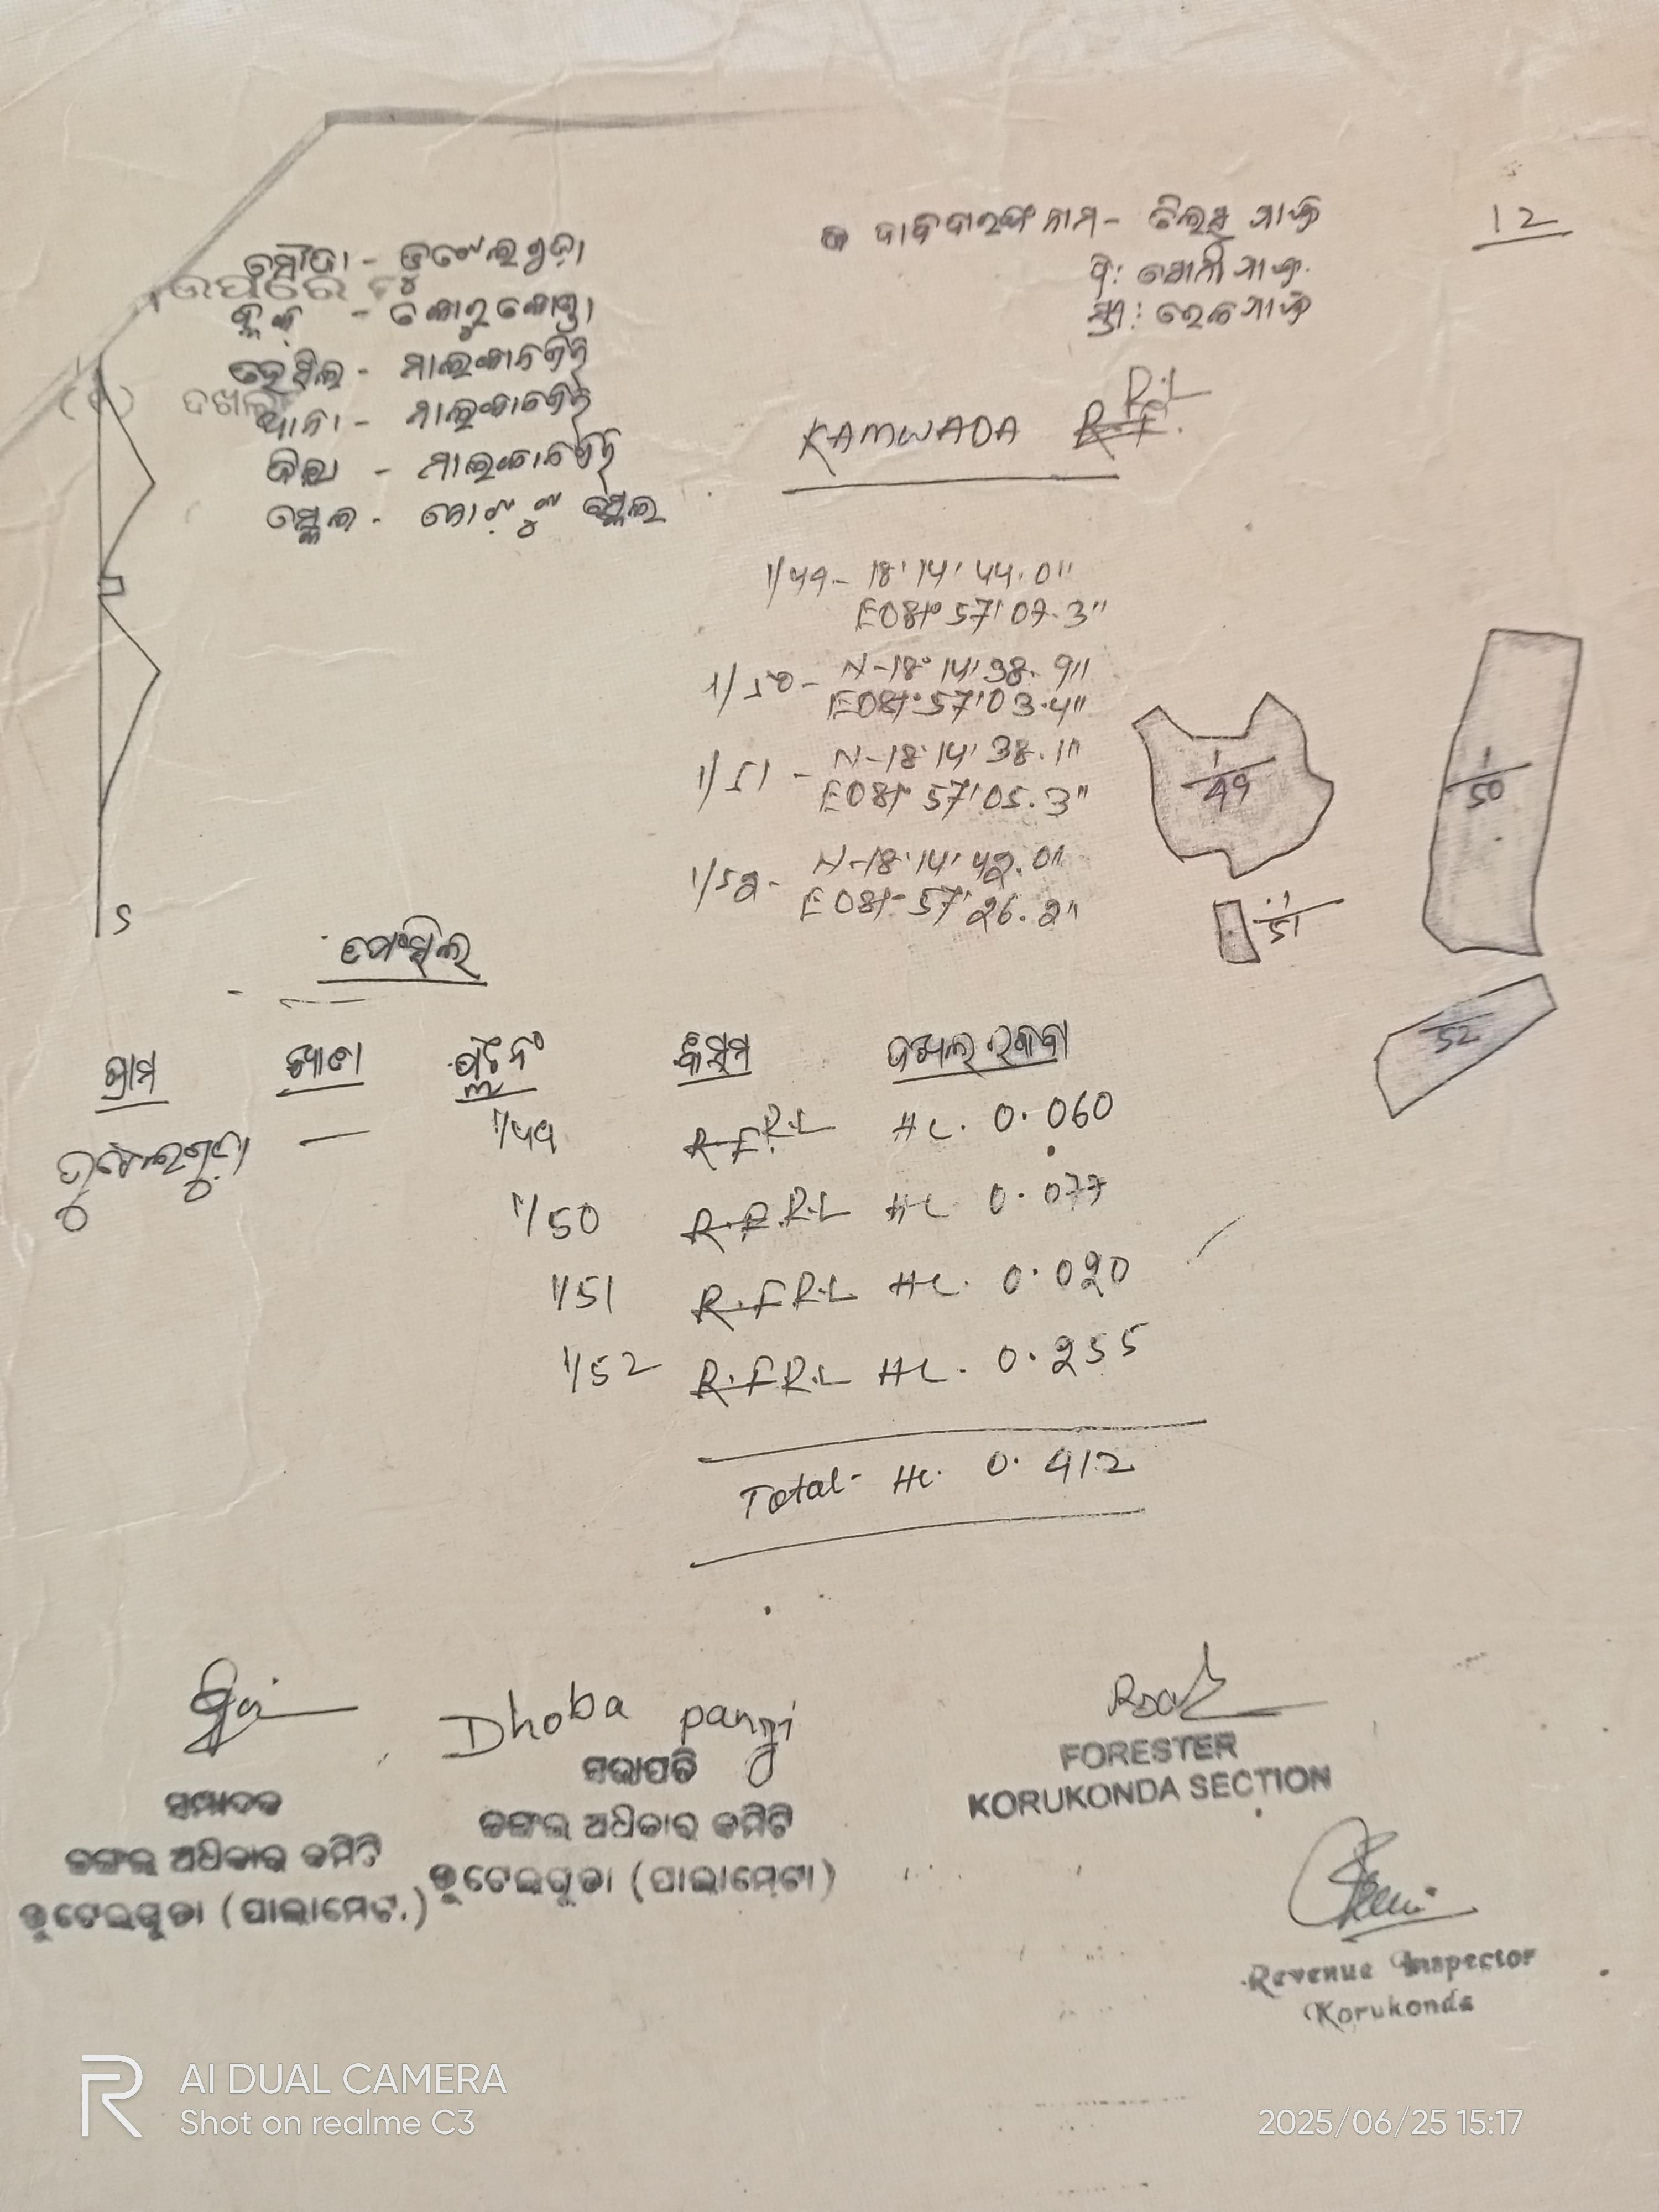 12
ଦାବିଦାରଙ୍କ ନାମ -
ମୌଜା -
ଉପରେ
ବ୍ଲକ - କୋରୁକୋଣ୍ଡା
ତହସିଲ - ମାଲକାନଗିରି
ଦଖଲ
ଥାନା - ମାଲକାନଗିରି
ଜିଲ୍ଲା - ମାଲକାନଗିରି
ସ୍କେଲ - ସ୍କେଲ
KAMWADA R.F. R.L
1/49 - 18° 14' 44.0"
E081° 57' 07.3"
1/50 - N-18° 14' 38.9"
E081° 57' 03.4"
1/51 - N-18° 14' 38.1"
E081° 57' 05.3"
1/52 - N-18° 14' 42.0"
E081° 57' 26.2"
1/49
1/50
1/51
52
S
ଗ୍ରାମ ଖାତା ପ୍ଲଟ ନଂ କିସମ ଦଖଲ ରକବା
— 1/49 R.F R.L Hc. 0.060
1/50 R.F. R.L Hc 0.077
1/51 R.F R.L Hc. 0.020
1/52 R.F R.L Hc. 0.255
Total - Hc. 0.412
Dhoba pangi
ସଭାପତି
ଜଙ୍ଗଲ ଅଧିକାର କମିଟି
ଡୁଟେଇଗୁଡା (ପାଲାମେଟା)
ସମ୍ପାଦକ
ଜଙ୍ଗଲ ଅଧିକାର କମିଟି
ଡୁଟେଇଗୁଡା (ପାଲାମେଟା.)
FORESTER
KORUKONDA SECTION
Revenue Inspector
Korukonda
AI DUAL CAMERA
Shot on realme C3
2025/06/25 15:17